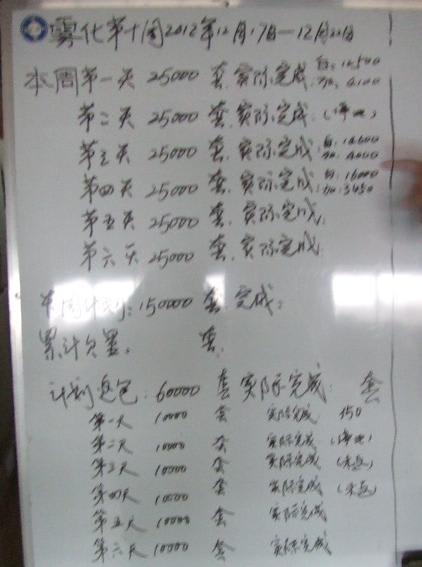 雾化第十周2012年12月17日—12月22日
本周第一天 25000 套 实际完成: 白:12500
加: 4100
第二天 25000 套 实际完成: (停电)
第三天 25000 套 实际完成: 白:12600
加: 4000
第四天 25000 套 实际完成: 白:16000
加:3450
第五天 25000 套 实际完成:
第六天 25000 套 实际完成:
本周计划:150000 套 完成:
累计欠量: 套
计划返包: 60000 套 实际完成: 套
第一天 10000 套 实际完成 150
第二天 10000 套 实际完成 (停电)
第三天 10000 套 实际完成 (未返)
第四天 10000 套 实际完成 (未返)
第五天 10000 套 实际完成
第六天 10000 套 实际完成